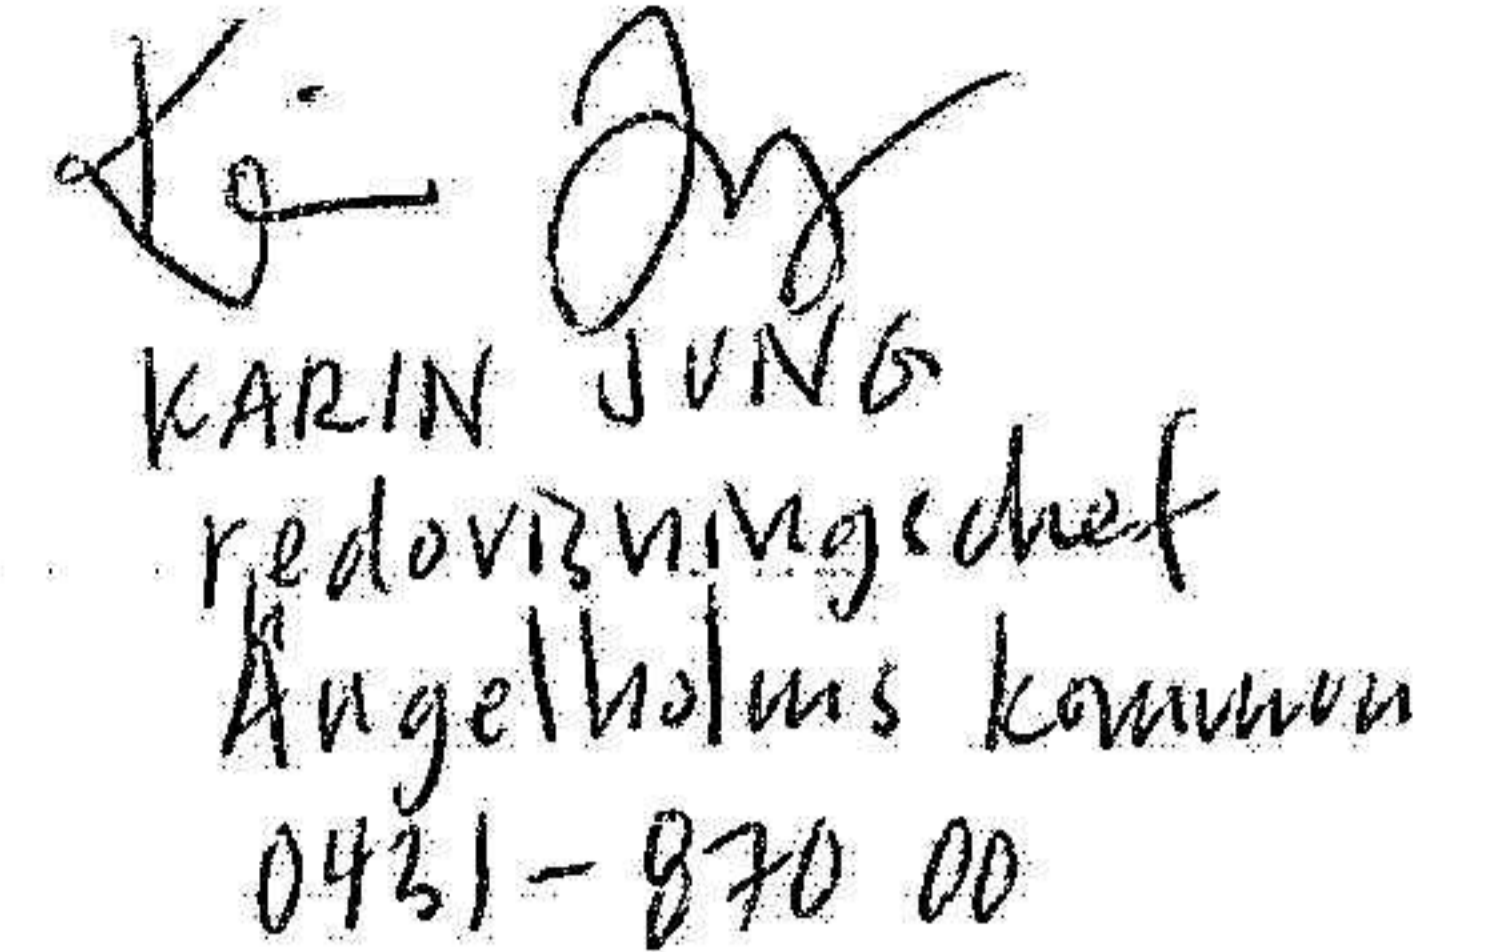 Karin Jung
KARIN JUNG
redovisningschef
Ängelholms kommun
0431-870 00